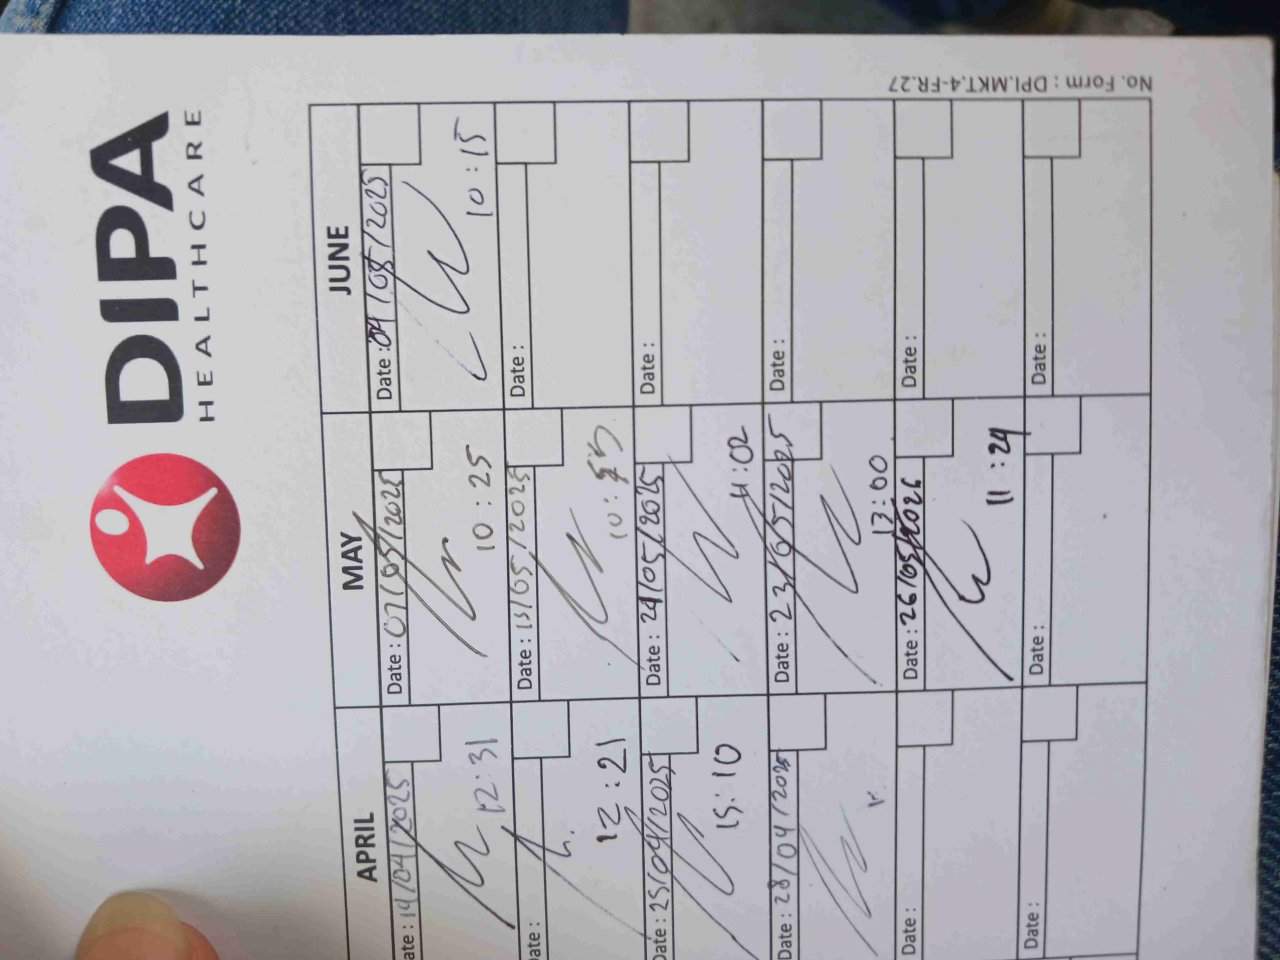 DIPA
HEALTHCARE
No. Form : DPI.MKT.4-FR.27
APRIL
MAY
JUNE
ate : 14/04/2025
12:31
Date : 07/05/2025
10:25
Date : 04/05/2025
10:15
Date :
12:21
Date : 13/05/2025
10:
Date :
Date : 25/04/2025
15:10
Date : 21/05/2025
11:02
Date :
Date : 28/04/2025
Date : 23/05/2025
13:00
Date :
Date :
Date : 26/05/2026
11:29
Date :
Date :
Date :
Date :